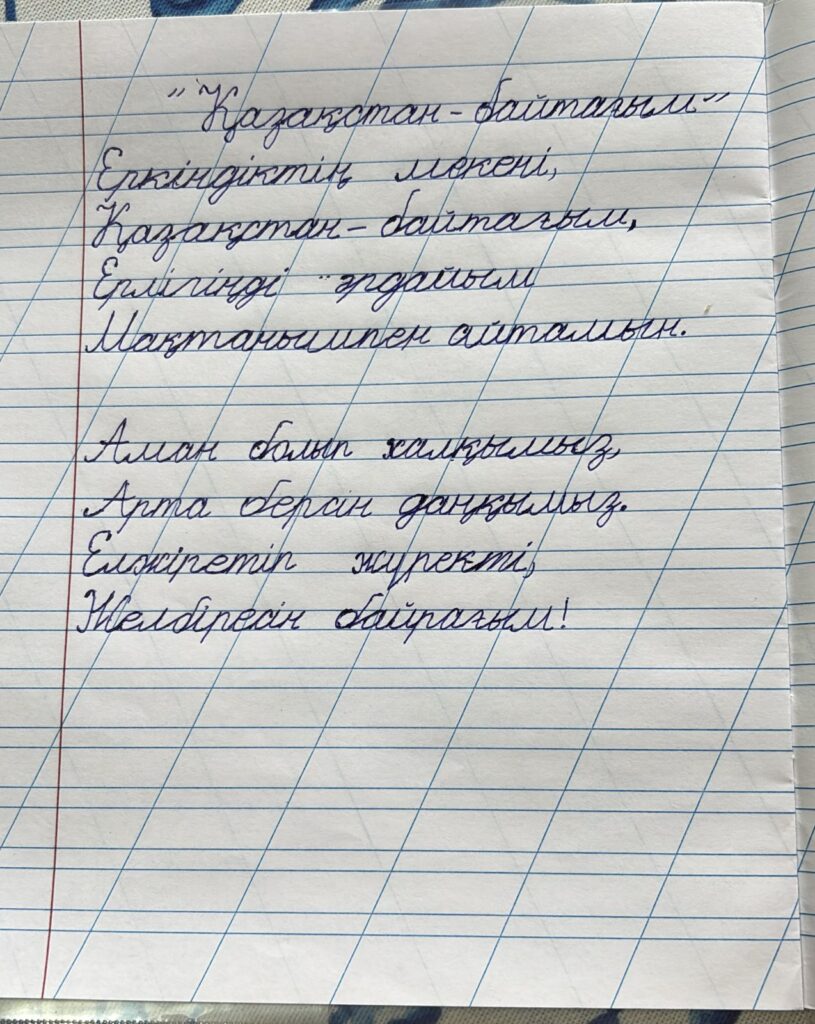 "Қазақстан - байтағым"
Еркіндіктің мекені,
Қазақстан - байтағым,
Ерлігіңді әрдайым
Мақтанышпен айтамын.
Аман болып халқымыз,
Арта берсін даңқымыз.
Елжіретіп жүректі,
Желбіресін байрағым!